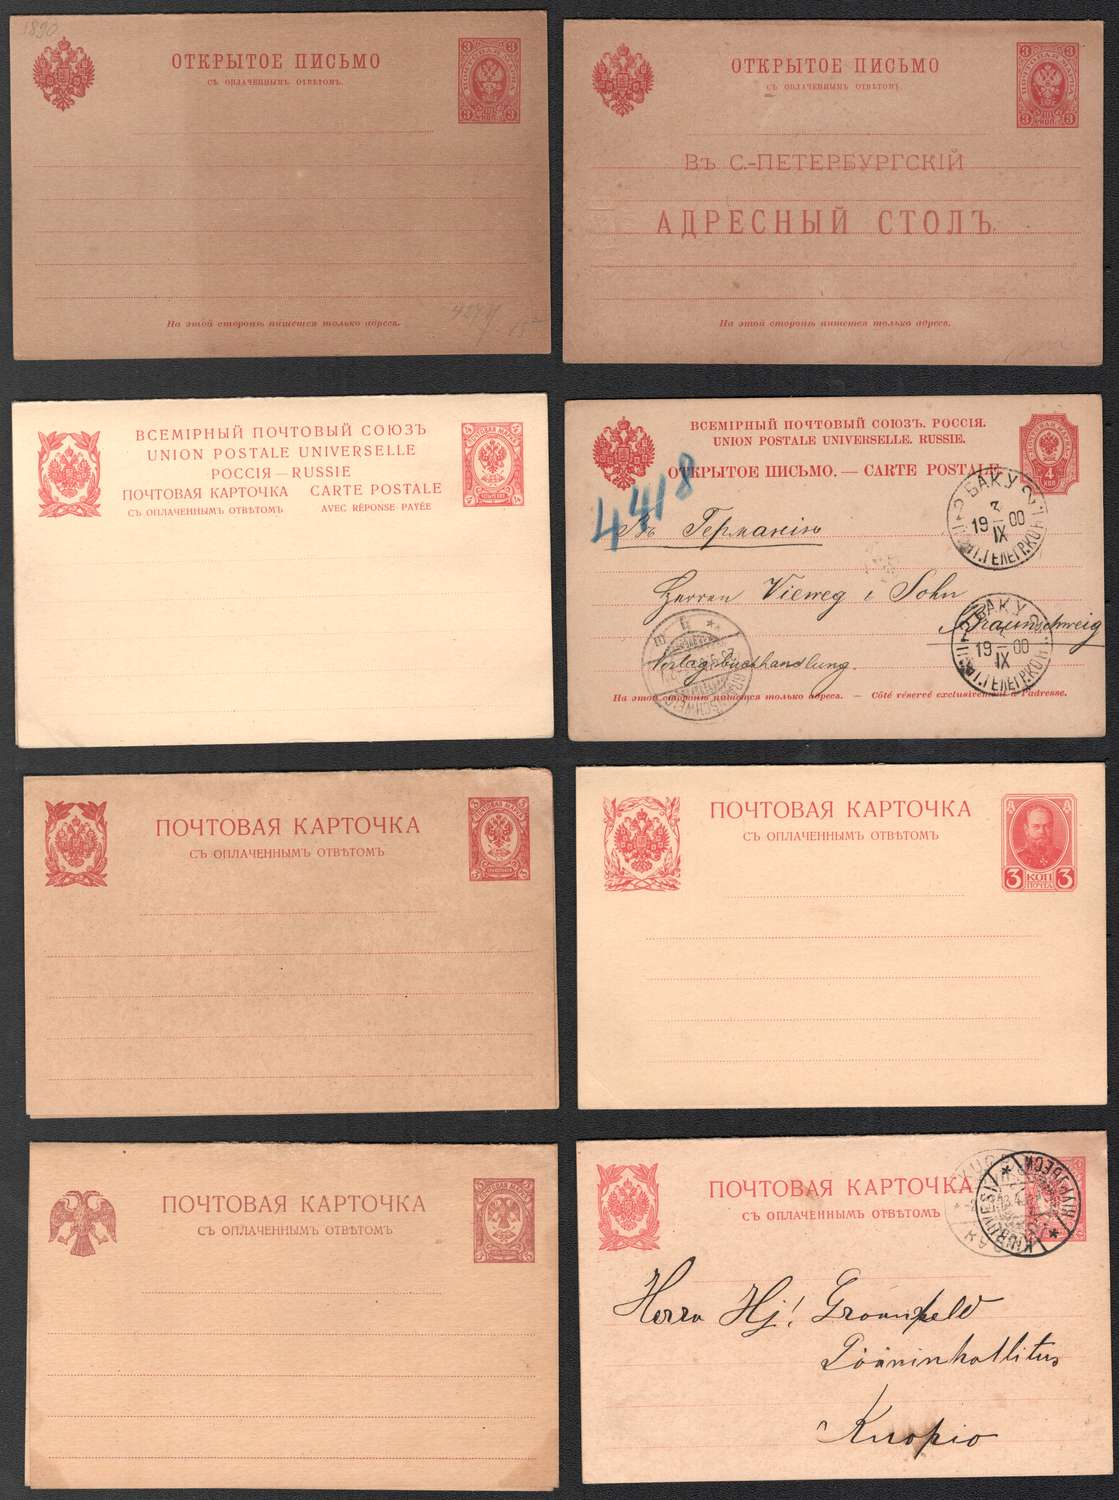 1890
ОТКРЫТОЕ ПИСЬМО
СЪ ОПЛАЧЕННЫМЪ ОТВѢТОМЪ.
3 3
ПОЧТОВАЯ МАРКА
3 3
На этой сторонѣ пишется только адресъ.
ОТКРЫТОЕ ПИСЬМО
СЪ ОПЛАЧЕННЫМЪ ОТВѢТОМЪ.
3 3
ПОЧТОВАЯ МАРКА
3 3
ВЪ С.-ПЕТЕРБУРГСКІЙ
АДРЕСНЫЙ СТОЛЪ.
На этой сторонѣ пишется только адресъ.
ВСЕМІРНЫЙ ПОЧТОВЫЙ СОЮЗЪ
UNION POSTALE UNIVERSELLE
РОССІЯ — RUSSIE
ПОЧТОВАЯ КАРТОЧКА CARTE POSTALE
СЪ ОПЛАЧЕННЫМЪ ОТВѢТОМЪ AVEC RÉPONSE PAYÉE
4 4
ПОЧТОВАЯ МАРКА
4 4
ВСЕМІРНЫЙ ПОЧТОВЫЙ СОЮЗЪ. РОССІЯ.
UNION POSTALE UNIVERSELLE. RUSSIE.
ОТКРЫТОЕ ПИСЬМО. — CARTE POSTALE
4
КОП
4418
Въ Германію
Herren Vieweg & Sohn
Braunschweig
Verlagsbuchhandlung.
БАКУ
3
19 00
IX
БАКУ
19 00
IX
BRAUNSCHWEIG
На этой сторонѣ пишется только адресъ. — Côté réservé exclusivement à l'adresse.
ПОЧТОВАЯ КАРТОЧКА
СЪ ОПЛАЧЕННЫМЪ ОТВѢТОМЪ
3 3
ПОЧТОВАЯ МАРКА
3 3
ПОЧТОВАЯ КАРТОЧКА
СЪ ОПЛАЧЕННЫМЪ ОТВѢТОМЪ
3 КОП 3
ПОЧТА
ПОЧТОВАЯ КАРТОЧКА
СЪ ОПЛАЧЕННЫМЪ ОТВѢТОМЪ
5 5
ПОЧТОВАЯ МАРКА
5 5
ПОЧТОВАЯ КАРТОЧКА
СЪ ОПЛАЧЕННЫМЪ ОТВѢТОМЪ
KIURUVESI
Herra Hj! Groanfeld
Lääninhallitus
Kuopio